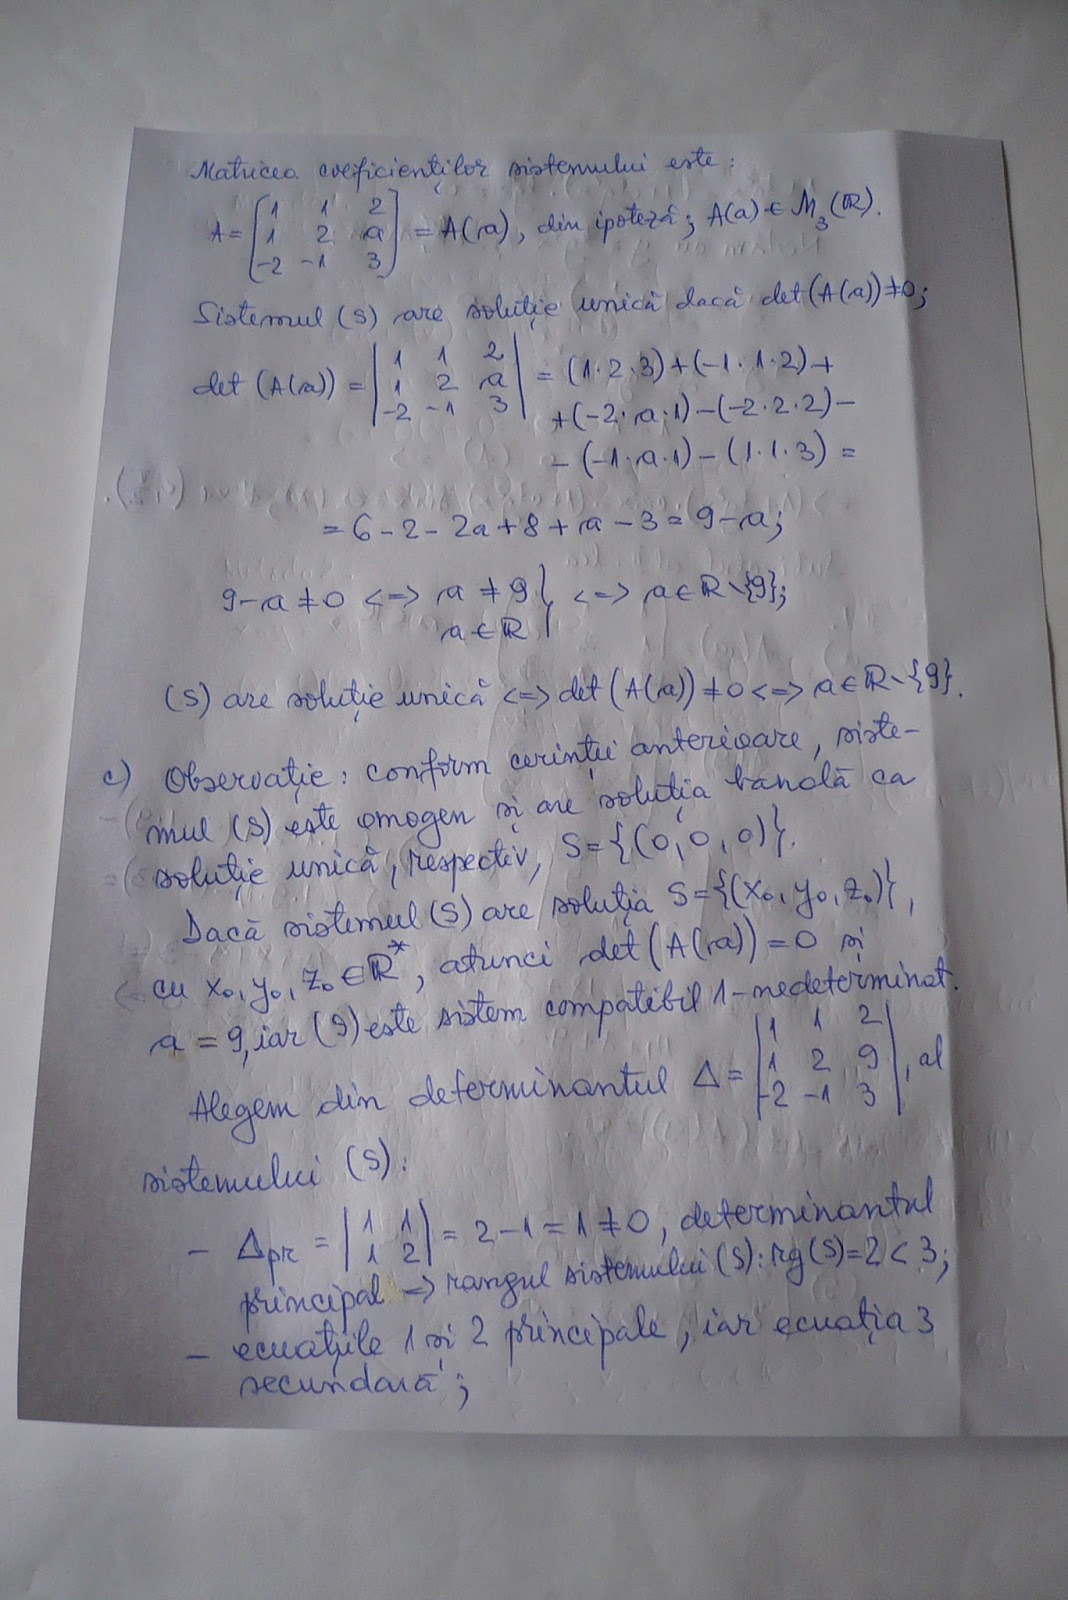 Matricea coeficienților sistemului este:
A = [1 1 2; 1 2 a; -2 -1 3] = A(a), din ipoteză; A(a) ∈ M₃(ℝ).
Sistemul (S) are soluție unică dacă det(A(a)) ≠ 0;
det (A(a)) = |1 1 2; 1 2 a; -2 -1 3| = (1·2·3)+(-1·1·2)+
+(-2·a·1)-(-2·2·2)-
-(-1·a·1)-(1·1·3) =
= 6-2-2a+8+a-3 = 9-a;
9-a ≠ 0 <=> a ≠ 9 } <=> a ∈ ℝ \ {9};
a ∈ ℝ
(S) are soluție unică <=> det(A(a)) ≠ 0 <=> a ∈ ℝ \ {9}.
c) Observație: conform cerinței anterioare, siste-
mul (S) este omogen și are soluția banală ca
soluție unică, respectiv, S={(0,0,0)}.
Dacă sistemul (S) are soluția S={(x₀,y₀,z₀)},
cu x₀,y₀,z₀ ∈ ℝ*, atunci det(A(a))=0 și
a = 9, iar (S) este sistem compatibil 1-nedeterminat.
Alegem din determinantul Δ = |1 1 2; 1 2 9; -2 -1 3|, al
sistemului (S):
- Δpr = |1 1; 1 2| = 2-1 = 1 ≠ 0, determinantul
principal => rangul sistemului (S): rg(S)=2 < 3;
- ecuațiile 1 și 2 principale, iar ecuația 3
secundară;